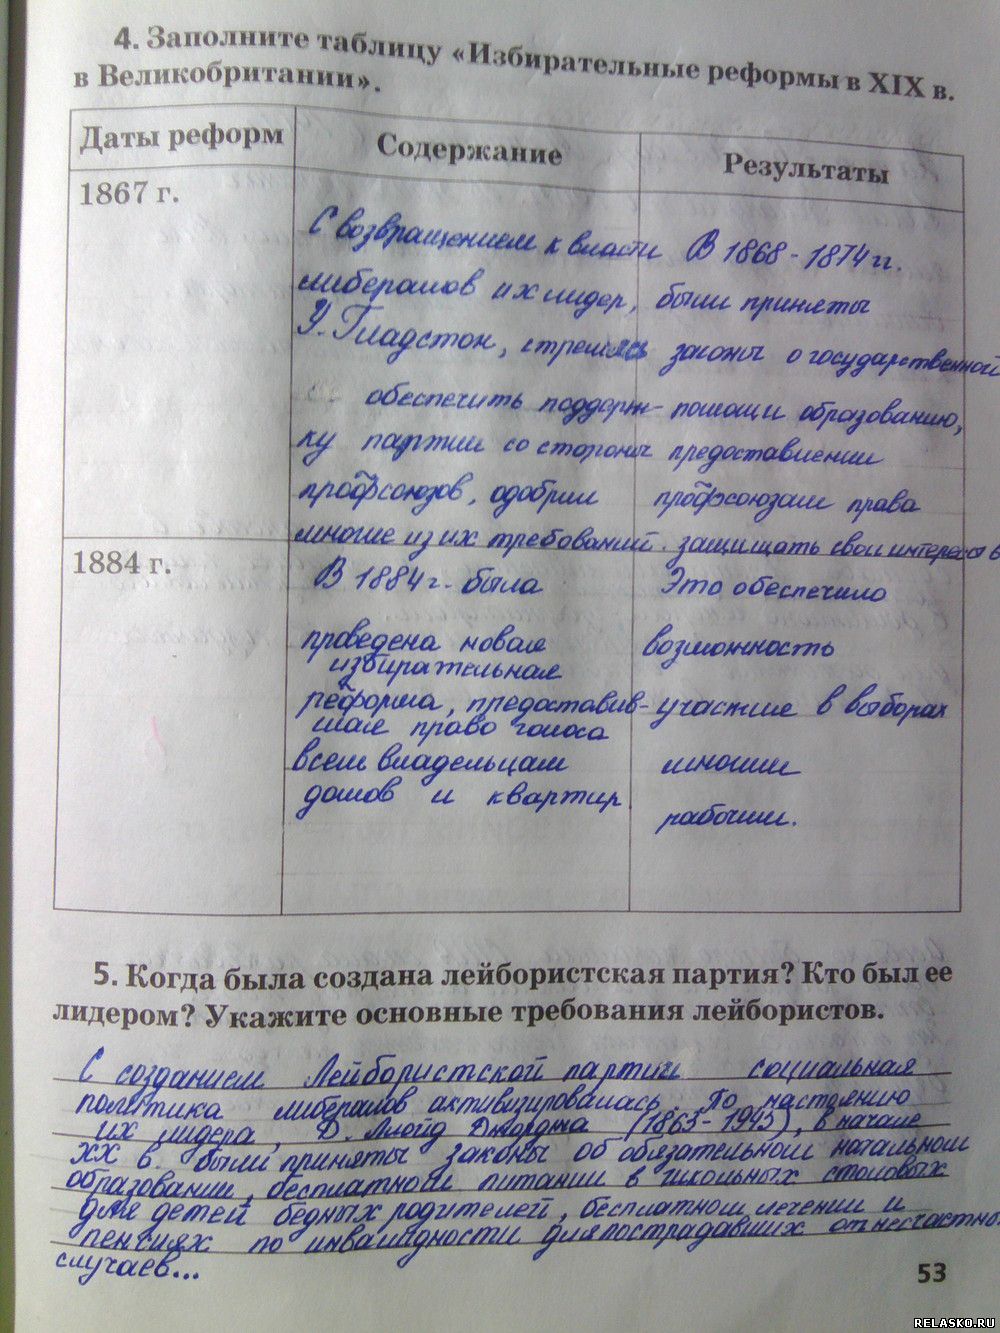 4. Заполните таблицу «Избирательные реформы в XIX в.
в Великобритании».
Даты реформ
Содержание
Результаты
1867 г.
С возвращением к власти
либералов их лидер,
У. Гладстон, стремясь
обеспечить поддерж-
ку партии со стороны
профсоюзов, одобрил
многие из их требований.
В 1868 - 1874 гг.
были приняты
законы о государственной
помощи образованию,
предоставлении
профсоюзам права
защищать свои интересы в
1884 г.
В 1884 г. была
проведена новая
избирательная
реформа, предоставив-
шая право голоса
всем владельцам
домов и квартир
Это обеспечило
возможность
участие в выборах
многим
рабочим.
5. Когда была создана лейбористская партия? Кто был ее
лидером? Укажите основные требования лейбористов.
С созданием Лейбористской партии социальная
политика либералов активизировалась По настоянию
их лидера, Д. Ллойд Джорджа (1863-1945), в начале
XX в. были приняты законы об обязательном начальном
образовании, бесплатном питании в школьных столовых
для детей бедных родителей, бесплатном лечении и
пенсиях по инвалидности для пострадавших от несчастных
случаев...
53
RELASKO.RU